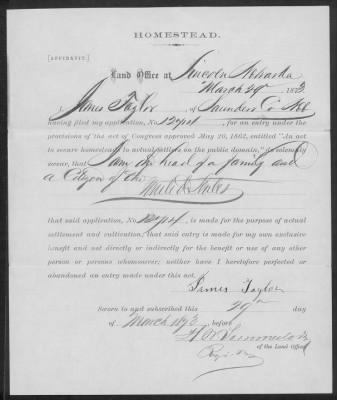 HOMESTEAD.
[AFFIDAVIT.]
Land Office at Lincoln Nebraska
March 29th 1873.
I, James Taylor, of Saunders Co Neb
having filed my application, No. for an entry under the
provisions of the act of Congress approved May 20, 1862, entitled "An act
to secure homesteads to actual settlers on the public domain," do solemnly
swear, that I am the head of a family and
a Citizen of the
United States
that said application, No. is made for the purpose of actual
settlement and cultivation; that said entry is made for my own exclusive
benefit and not directly or indirectly for the benefit or use of any other
person or persons whomsoever; neither have I heretofore perfected or
abandoned an entry made under this act.
James Taylor
Sworn to and subscribed this 29th day
of March 1873, before
of the Land Office.